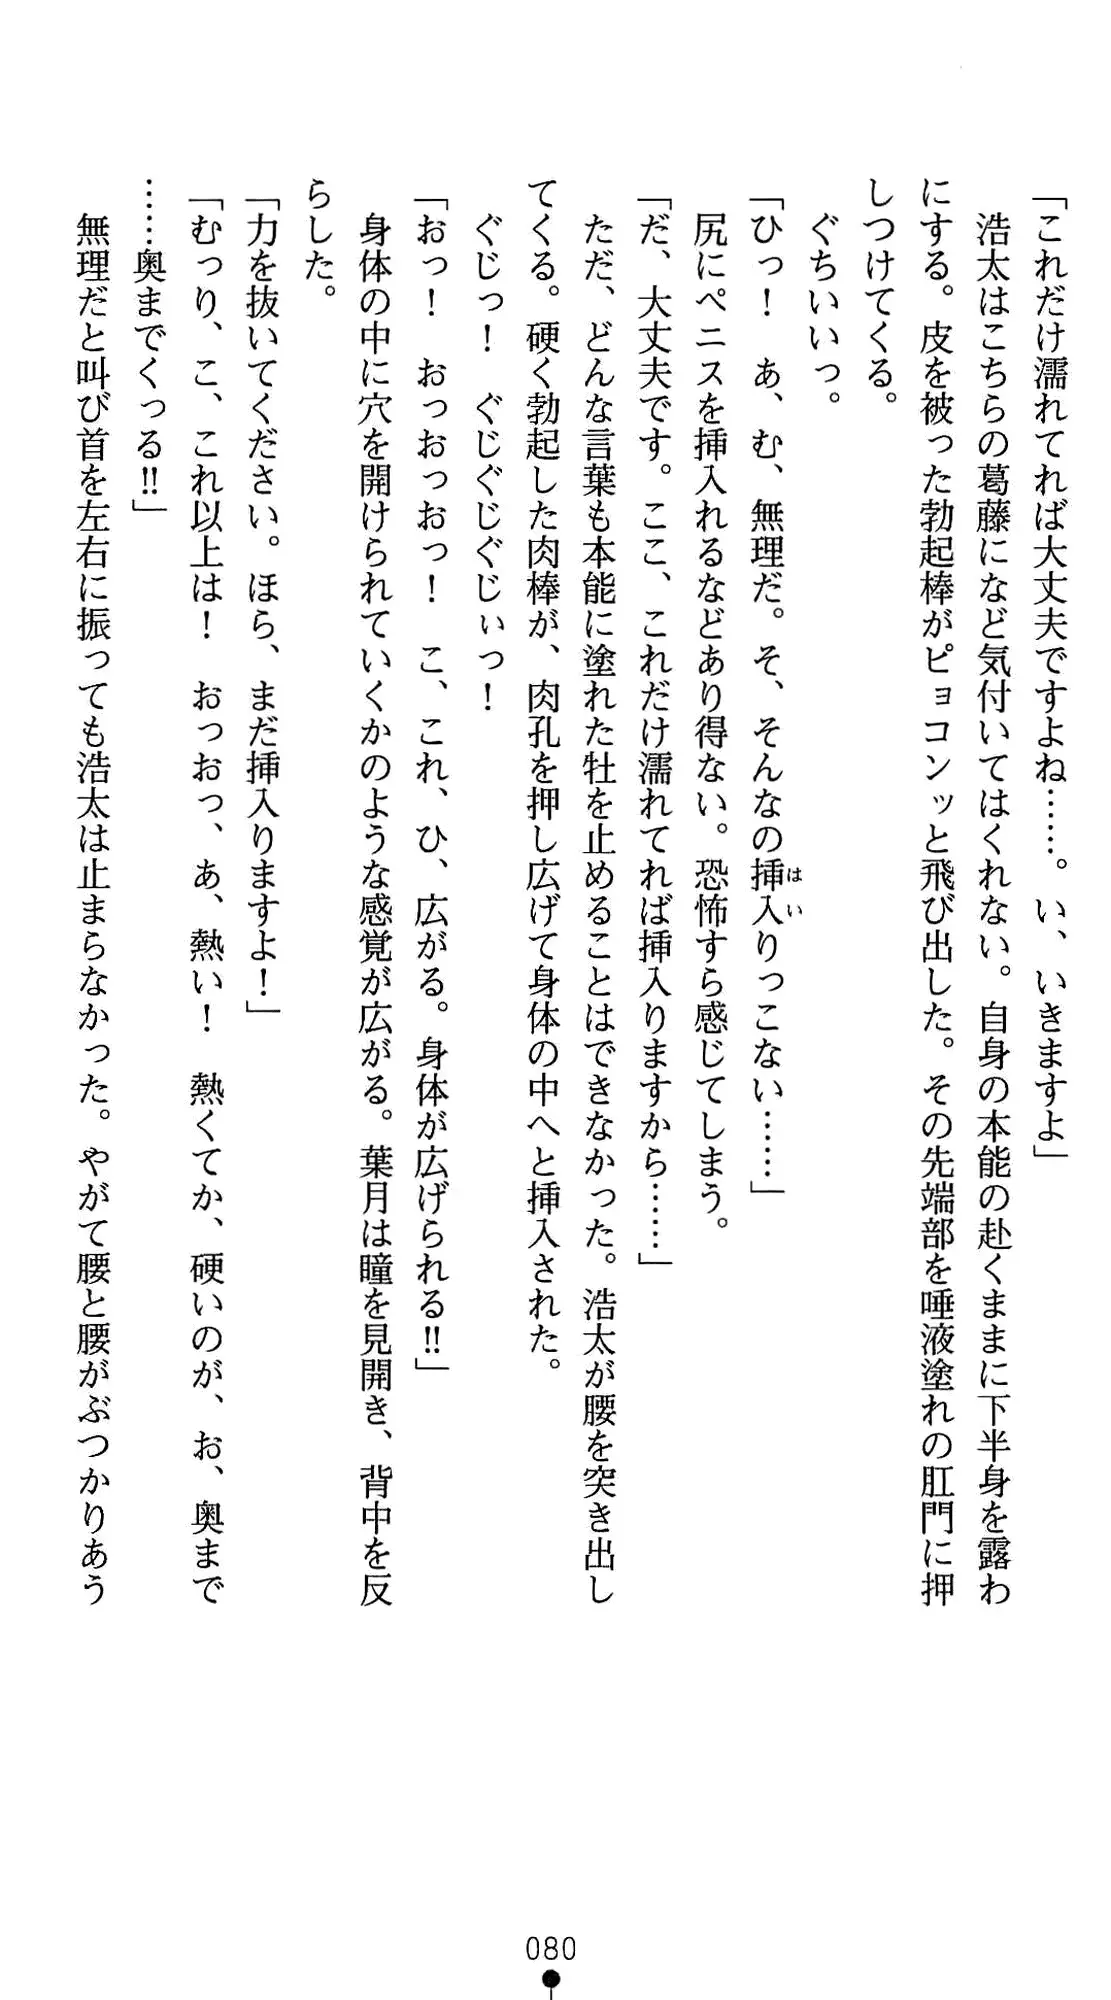 「これだけ濡れてれば大丈夫ですよね……。い、いきますよ」
浩太はこちらの葛藤になど気付いてはくれない。自身の本能の赴くままに下半身を露わ
にする。皮を被った勃起棒がピョコンッと飛び出した。その先端部を唾液塗れの肛門に押
しつけてくる。
ぐちいいっ。
「ひっ！　あ、む、無理だ。そ、そんなの挿入りっこない……」
尻にペニスを挿入れるなどあり得ない。恐怖すら感じてしまう。
「だ、大丈夫です。ここ、これだけ濡れてれば挿入りますから……」
ただ、どんな言葉も本能に塗れた牡を止めることはできなかった。浩太が腰を突き出し
てくる。硬く勃起した肉棒が、肉孔を押し広げて身体の中へと挿入された。
ぐじっ！　ぐじぐじぐじぃっ！
「おっ！　おっおっおっ！　こ、これ、ひ、広がる。身体が広げられる‼」
身体の中に穴を開けられていくかのような感覚が広がる。葉月は瞳を見開き、背中を反
らした。
「力を抜いてください。ほら、まだ挿入りますよ！」
「むっり、こ、これ以上は！　おっおっ、あ、熱い！　熱くてか、硬いのが、お、奥まで
……奥までくっる‼」
無理だと叫び首を左右に振っても浩太は止まらなかった。やがて腰と腰がぶつかりあう
080